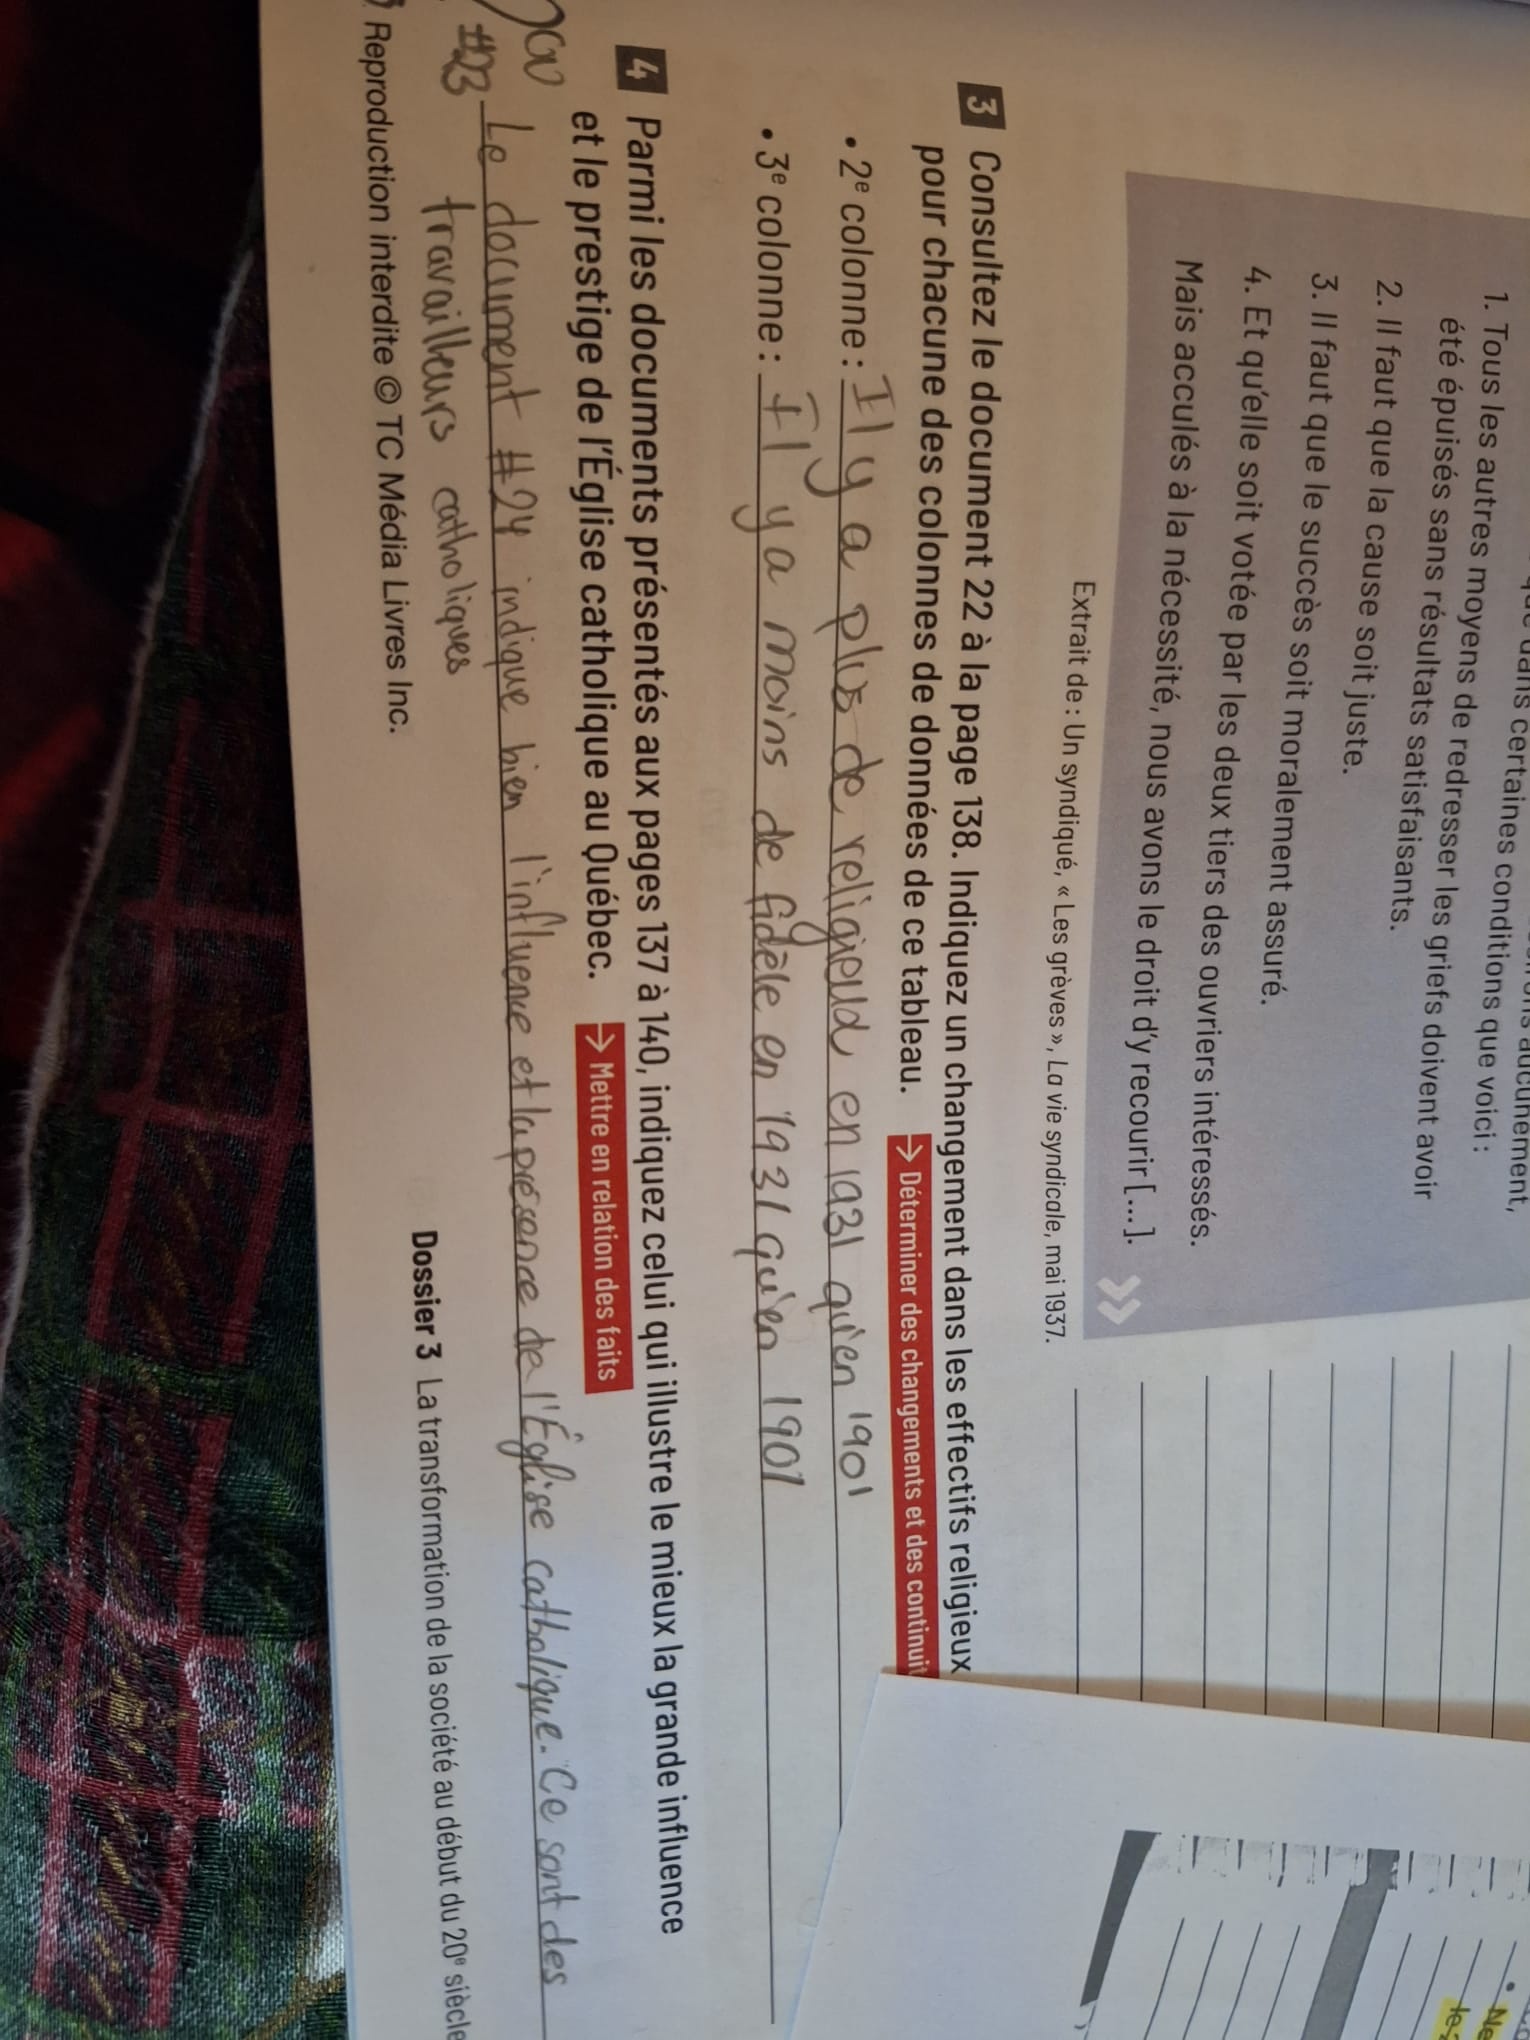 certaines conditions que voici :
1. Tous les autres moyens de redresser les griefs doivent avoir
été épuisés sans résultats satisfaisants.
2. Il faut que la cause soit juste.
3. Il faut que le succès soit moralement assuré.
4. Et qu'elle soit votée par les deux tiers des ouvriers intéressés.
Mais acculés à la nécessité, nous avons le droit d'y recourir [...]. »
Extrait de : Un syndiqué, « Les grèves », La vie syndicale, mai 1937.
3 Consultez le document 22 à la page 138. Indiquez un changement dans les effectifs religieux
pour chacune des colonnes de données de ce tableau. → Déterminer des changements et des continuit
• 2e colonne : Il y a plus de religieux en 1931 qu'en 1901
• 3e colonne : Il y a moins de fidèle en 1931 qu'en 1901
4 Parmi les documents présentés aux pages 137 à 140, indiquez celui qui illustre le mieux la grande influence
et le prestige de l'Église catholique au Québec. → Mettre en relation des faits
#23 Le document #24 indique bien l'influence et la présence de l'Église catholique. Ce sont des
travailleurs catholiques
Reproduction interdite © TC Média Livres Inc.
Dossier 3 La transformation de la société au début du 20e siècle